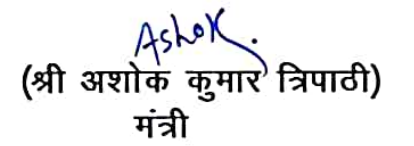 Ashok.
(श्री अशोक कुमार त्रिपाठी)
मंत्री